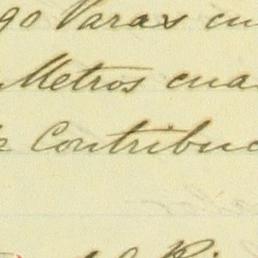 90 Varas cu
Metros cua
Contribuc